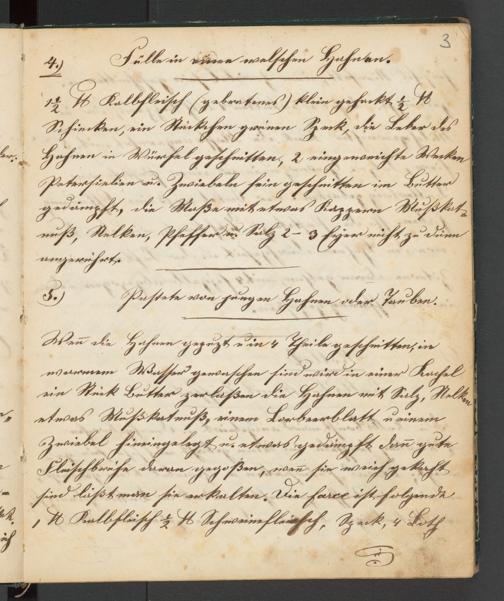 3
4.) Fülle in einen welschen Hahnen.
1½ ℔ Kalbfleisch (gebratenes) klein gehackt ½ ℔
Schinken, ein Stückchen grünen Speck, die Leber des
Hahnen in Würfel geschnitten, 2 eingeweichte Wecken
Petersielien u. Zwiebeln fein geschnitten im Butter
gedämpft, die Maße mit etwas Kappern Mußkat-
nuß, Nelken, Pfeffer u Salz 2–3 Eyer nicht zu dünn
angerührt.
5.) Pastete von jungen Hahnen oder Tauben.
Wen die Hahnen geputzt u in 4 Theile geschnitten, in
warmem Wasser gewaschen sind wird in einer Kachel
ein Stück Butter zerlaßen die Hahnen mit Salz, Nelken
etwas Mußkatnuß, einem Lorbeerblatt u einem
Zwiebel hineingelegt u. etwas gedämpft dan gute
Fleischbrühe daran gegoßen, wen sie weich gekocht
sind läßt man sie erkalten. Die farce ist folgende
1 ℔ Kalbfleisch ½ ℔ Schweinefleisch, Speck, 4 Loth